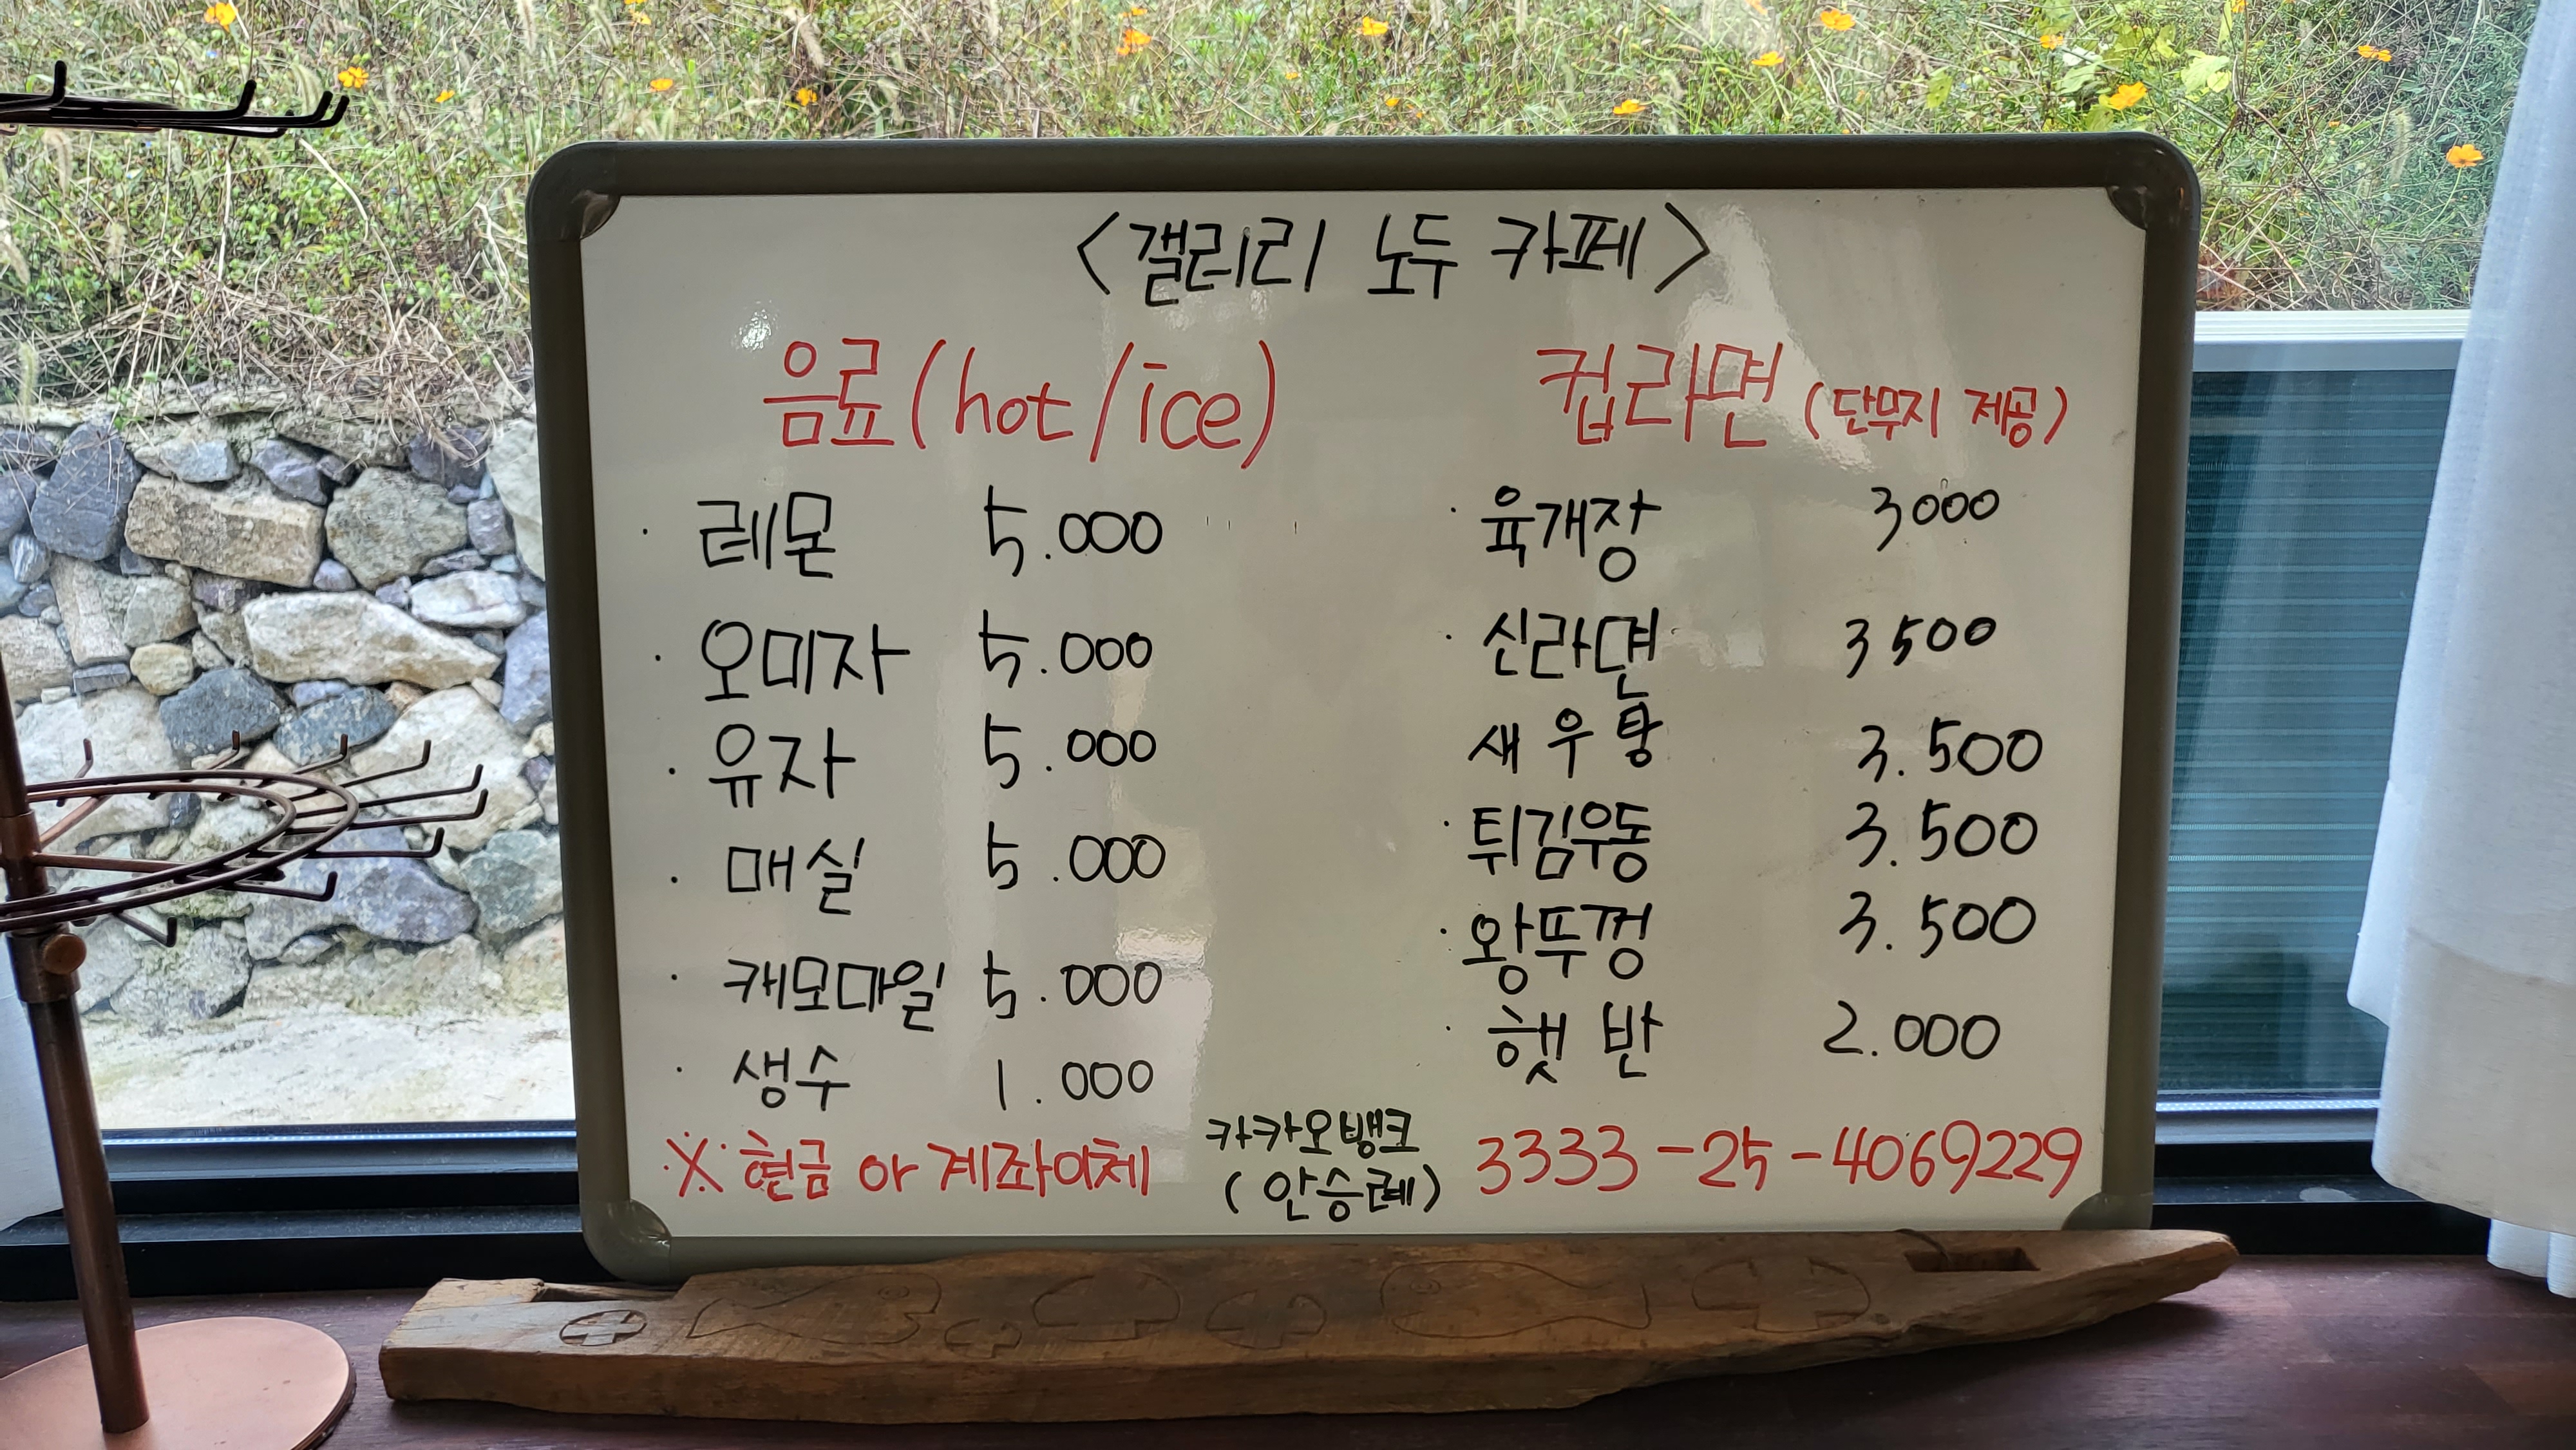 <갤러리 노두 카페>
음료(hot/ice)
· 레몬 5.000
· 오미자 5.000
· 유자 5.000
· 매실 5.000
· 캐모마일 5.000
· 생수 1.000
컵라면 (단무지 제공)
· 육개장 3000
· 신라면 3500
새우탕 3.500
· 튀김우동 3.500
· 왕뚜껑 3.500
· 햇반 2.000
※ 현금 or 계좌이체
카카오뱅크
(안승례)
3333-25-4069229